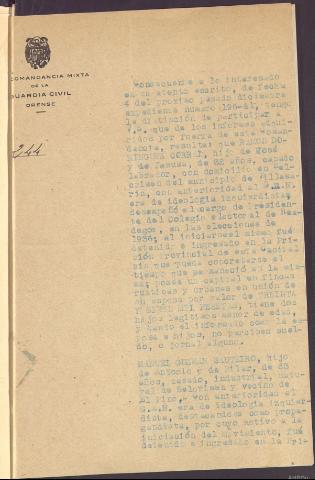 COMANDANCIA MIXTA
DE LA
GUARDIA CIVIL
ORENSE
244
Consecuente a lo interesado
en su atento escrito, de fecha
4 del próximo pasado diciembre
expediente número 196-41, tengo
la distinción de participar a
V.S. que de los informes adqui-
ridos por fuerza de esta Coman-
dancia, resulta: que RAMON DO-
MINGUEZ hijo de José
y de Jesusa, de 62 años, casado
labrador, con domicilio en
del municipio de Villama-
rín, con anterioridad al G.M.N.
era de ideología izquierdista,
desempeñó el cargo de Presiden-
te del Colegio electoral de
en las elecciones de
1936; al iniciarse el mismo fué
detenido e ingresado en la Pri-
sión Provincial de esta Capital
sin que pueda concretarse el
tiempo que permaneció en la mis-
ma; posee un capital en fincas
rústicas y urbanas en unión de
su esposa por valor de TREINTA
Y MIL PESETAS, tiene dos
hijos legítimos menor de edad,
y tanto el informado como la es-
posa e hijos, no perciben suel-
do, o jornal alguno.
MANUEL GUZMAN hijo
de Antonio y de Pilar, de 33
años, casado, industrial, natu-
ral de y vecino de
El Pino, con anterioridad al
G.M.N. era de ideología izquier-
dista, destacado como propa-
gandista, por cuyo motivo a la
iniciación del movimiento, fué
detenido e ingresado en la Pri-